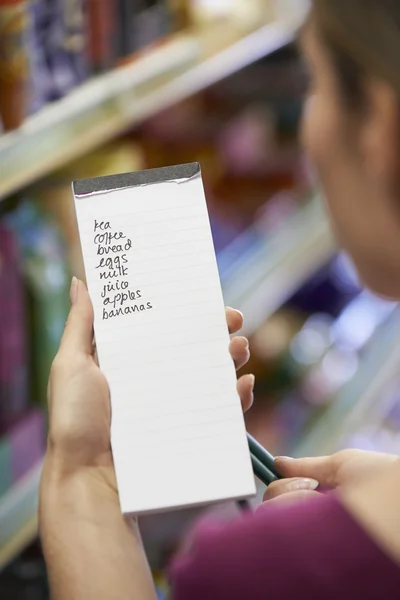 tea
coffee
bread
eggs
milk
juice
apples
bananas